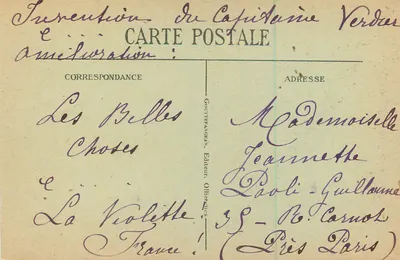 Invention du Capitaine Verdier
e
amélioration :
CARTE POSTALE
CORRESPONDANCE
ADRESSE
Les Belles
Choses
e
La Violette
France!
Mademoiselle
Jeannette
Paoli - Guillaume
35 - R. Carnot
(Près Paris)